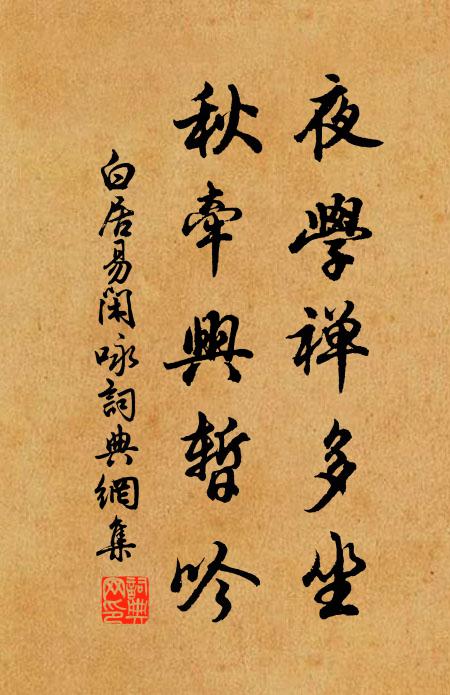 夜學禅多坐
秋牽興暫吟
白居易閑咏詞典網集
詞典網印